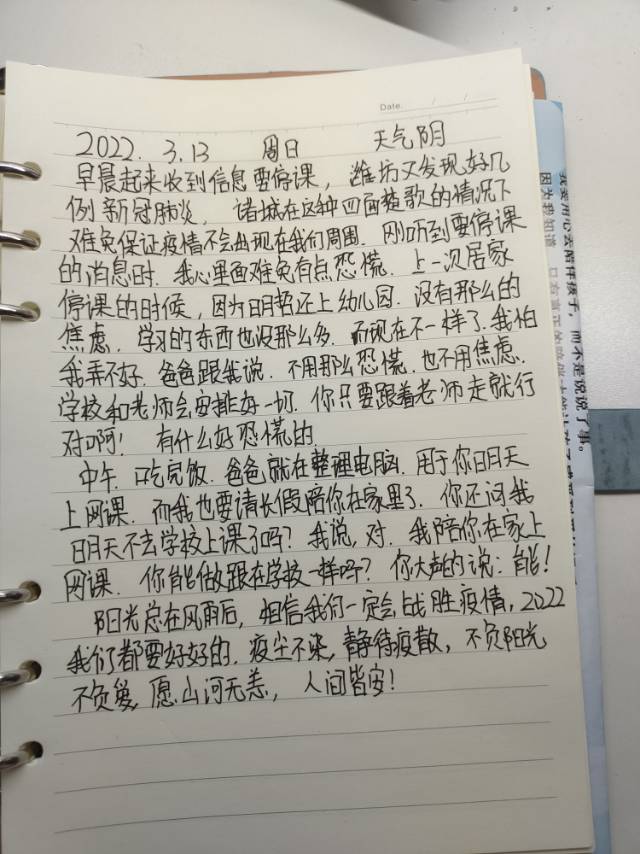 Date.    /    /
2022. 3.13 周日 天气阴
早晨起来收到信息要停课，潍坊又发现好几
例新冠肺炎，诸城在这种四面楚歌的情况下
难免保证疫情不会出现在我们周围．刚听到要停课
的消息时．我心里面难免有点恐慌．上一次居家
停课的时候，因为明哲还上幼儿园．没有那么的
焦虑．学习的东西也没那么多．而现在不一样了．我怕
我弄不好．爸爸跟我说．不用那么恐慌．也不用焦虑．
学校和老师会安排好一切．你只要跟着老师走就行
对啊！有什么好恐慌的．
中午．吃完饭．爸爸就在整理电脑．用于你明天
上网课．而我也要请长假陪你在家里了．你还问我
明天不去学校上课了吗？我说，对．我陪你在家上
网课．你能做跟在学校一样吗？你大声的说：能！
阳光总在风雨后，相信我们一定会战胜疫情，2022
我们都要好好的．疫尘不染，静待疫散，不负阳光
不负爹，愿山河无恙，人间皆安！
我要用心去陪伴孩子，而不是说说了事。
因为我知道 只有真正的陪伴